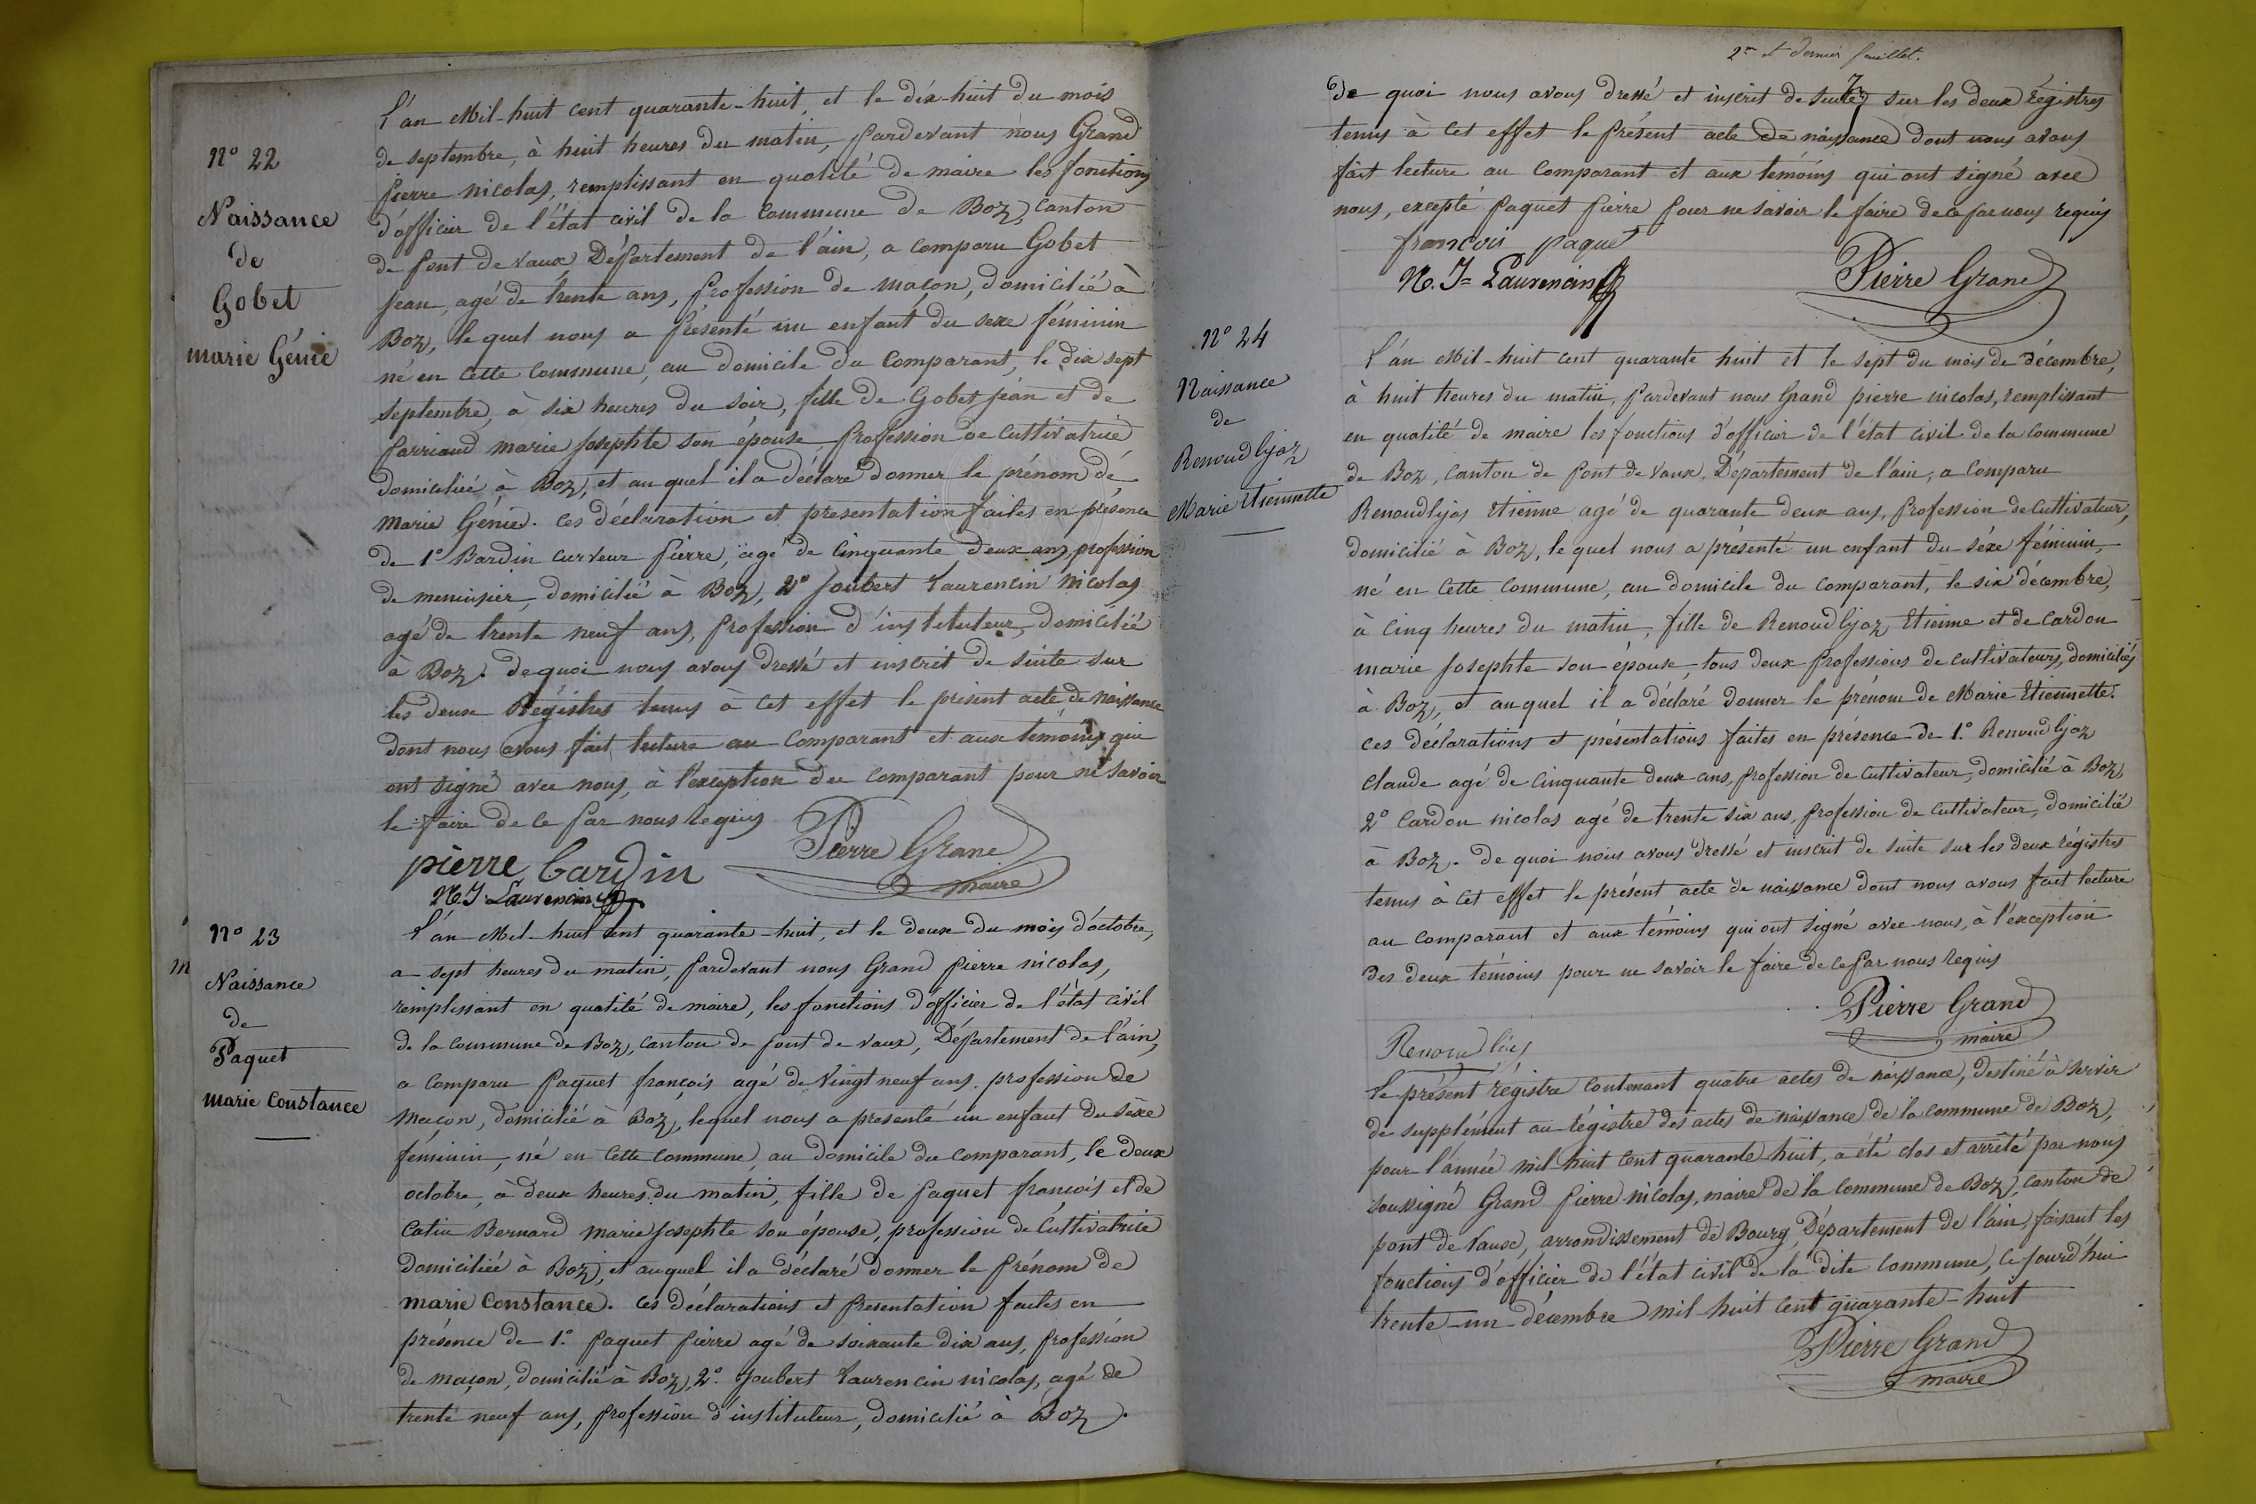 N° 22
Naissance
de
Gobet
marie Génie
L'an Mil-huit cent quarante-huit, et le dix-huit du mois
de septembre, à huit heures du matin, pardevant nous Grand
pierre nicolas, remplissant en qualité de maire les fonctions
d'officier de l'état civil de la commune de Boz, canton
de pont de vaux Département de l'ain, a comparu Gobet
jean, agé de trente ans, profession de maçon, domicilié à
Boz, le quel nous a présenté un enfant du sexe féminin
né en cette commune, au domicile du comparant, le dix sept
septembre, à six heures du soir, fille de Gobet jean et de
parriaud marie josephte son épouse, profession de cultivatrice
domiciliée à Boz, et au quel il a déclaré donner le prénom de
Marie Génie. ces déclaration et presentation faites en présence
de 1° Bardin curveur pierre, agé de cinquante deux ans, profession
de menuisier, domicilié à Boz, 2° Joubert Laurencin Nicolas
agé de trente neuf ans, profession d'instituteur, domicilié
à Boz. de quoi nous avons dressé et inscrit de suite sur
les deux Régistres tenus à cet effet le présent acte de naissance
dont nous avons fait lecture au comparant et aux témoins qui
ont signé avec nous, à l'exception du comparant pour ne savoir
le faire de ce par nous requis
pierre bardin
Pierre Grand
maire
N. J. Laurencin
N° 23
Naissance
de
Paquet
marie Constance
L'an Mil-huit cent quarante-huit, et le deux du mois d'octobre,
a sept heures du matin, pardevant nous Grand pierre nicolas,
remplissant en qualité de maire, les fonctions d'officier de l'état civil
de la commune de Boz, canton de pont de vaux, Département de l'ain,
a comparu paquet françois agé de vingt neuf ans, profession de
maçon, domicilié à Boz, lequel nous a présenté un enfant du sèxe
féminin, né en cette commune, au domicile du comparant, le deux
octobre, à deux heures du matin, fille de paquet françois et de
catin Bernard marie josephte son épouse, profession de cultivatrice
domiciliée à Boz, et auquel il a déclaré donner le prénom de
marie Constance. ces déclarations et presentation faites en
présence de 1.° paquet pierre agé de soixante dix ans, profession
de maçon, domicilié à Boz, 2.° Joubert Laurencin nicolas, agé de
trente neuf ans, profession d'instituteur, domicilié à Boz.
2me et dernier feuillet.
De quoi nous avons dressé et inscrit de suite sur les deux régistres
tenus à cet effet le présent acte de naissance dont nous avons
fait lecture au comparant et aux témoins qui ont signé avec
nous, excepté paquet pierre pour ne savoir le faire de ce par nous requis
françois paquet
N. J= Laurencin
Pierre Grand
N° 24
Naissance
de
Renoud lyaz
Marie Etiennette
L'an Mil-huit cent quarante huit et le sept du mois de décembre,
à huit heures du matin, pardevant nous Grand pierre nicolas, remplissant
en qualité de maire les fonctions d'officier de l'état civil de la commune
de Boz, canton de pont de vaux, Département de l'ain, a comparu
Renoud lyas Etienne agé de quarante deux ans, profession de cultivateur,
domicilié à Boz, le quel nous a présenté un enfant du sèxe féminin,
né en cette commune, au domicile du comparant, le six décembre,
à cinq heures du matin, fille de Renoud lyaz Etienne et de Cardon
marie josephte son épouse, tous deux professions de cultivateurs, domiciliés
à Boz, et auquel il a déclaré donner le prénom de Marie Etiennette.
ces déclarations et présentations faites en présence de 1.° Renoud lyaz
claude agé de cinquante deux ans, profession de cultivateur, domicilié à Boz,
2.° Cardon nicolas agé de trente six ans, profession de cultivateur, domicilié
à Boz. De quoi nous avons dressé et inscrit de suite sur les deux régistres
tenus à cet effet le présent acte de naissance dont nous avons fait lecture
au comparant et aux témoins qui ont signé avec nous, à l'exception
des deux témoins pour ne savoir le faire de ce par nous requis
Pierre Grand
maire
Le présent régistre contenant quatre actes de naissance, destiné à servir
de supplément au régistre des actes de naissance de la commune de Boz,
pour l'année mil huit cent quarante huit, a été clos et arrêté par nous
soussigné Grand pierre nicolas, maire de la commune de Boz, canton de
pont de vaux, arrondissement de Bourg, Département de l'ain, faisant les
fonctions d'officier de l'état civil de la dite commune, ce jourd'hui
trente-un-décembre mil huit cent quarante-huit
Pierre Grand
maire